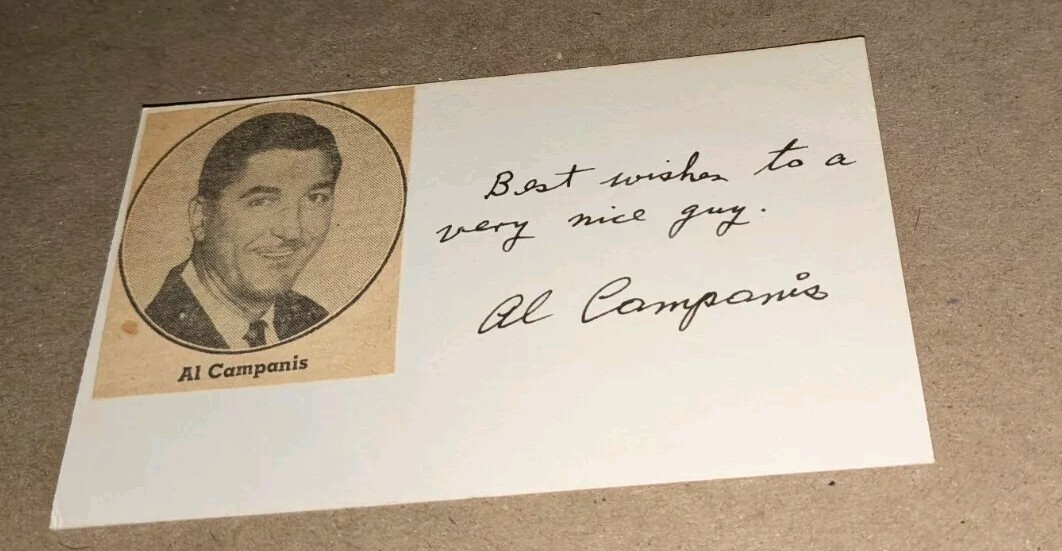 Best wishes to a
very nice guy.
Al Campanis
Al Campanis